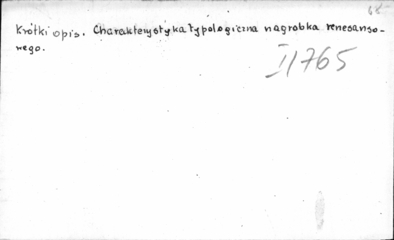 68
Krótki opis. Charakterystyka typologiczna nagrobka renesanso-
wego.
I/765